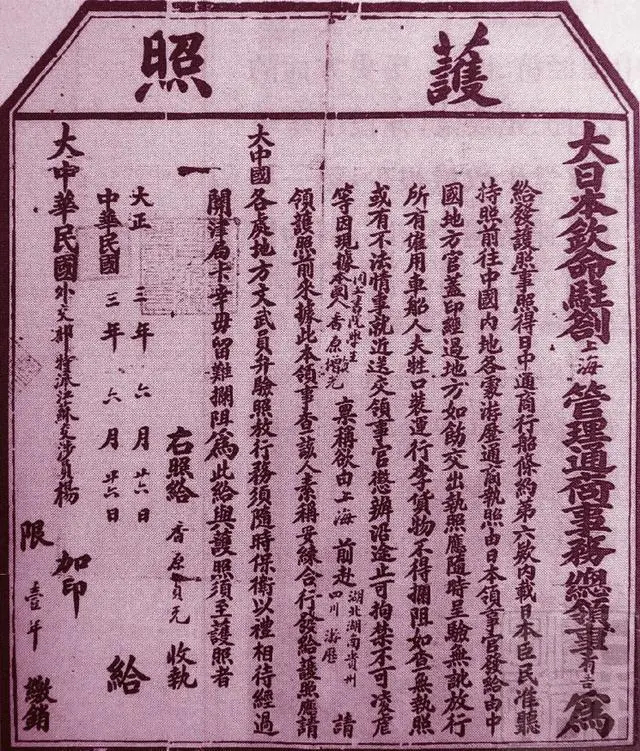 護照
大日本欽命駐劄上海管理通商事務總領事有吉為
給發護照事照得日中通商行船條約第六款內載日本臣民准聽
持照前往中國內地各處游歷通商執照由日本領事官發給由中
國地方官蓋印經過地方如飭交出執照應隨時呈驗無訛放行
所有僱用車船人夫牲口裝運行李貨物不得攔阻如查無執照
或有不法情事就近送交領事官懲辦沿途止可拘禁不可凌虐
等因現據本國人香原稟稱欲由上海前赴湖北湖南貴州四川游歷請
領護照前來據此本領事查該人素稱妥練合行發給護照應請
大中國各處地方文武員弁驗照放行務須隨時保衛以禮相待經過
關津局卡幸毋留難攔阻為此給與護照須至護照者
右照給香原收執
一
大正三年六月廿六日給
中華民國三年六月廿六日
大中華民國外交部特派江蘇交涉員楊加印
限壹年繳銷